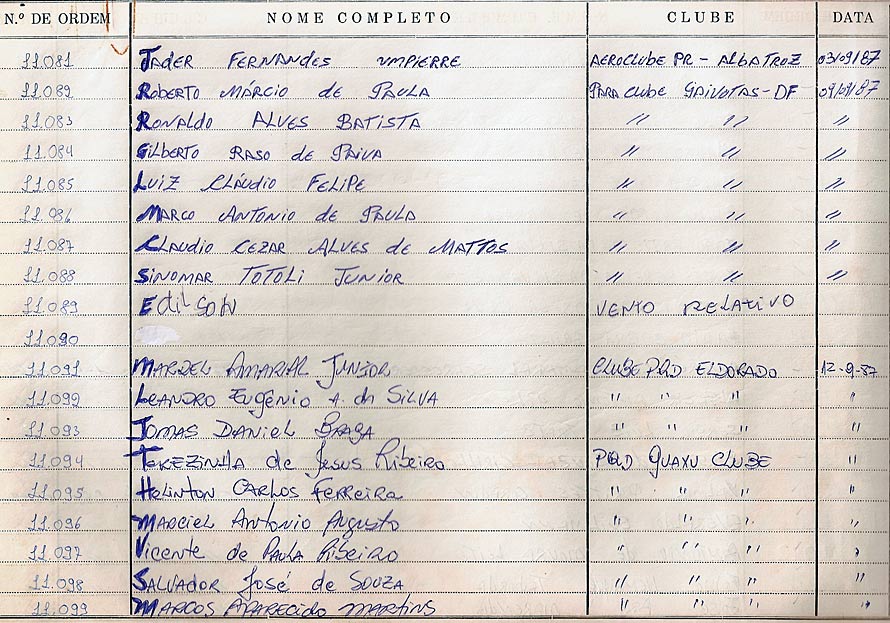 N.º DE ORDEM NOME COMPLETO CLUBE DATA
11.081 JADER FERNANDES UMPIERRE AEROCLUBE PR - ALBATROZ 03/09/87
11.082 ROBERTO MÁRCIO de PAULA PARACLUBE GAIVOTAS-DF 09/09/87
11.083 RONALDO ALVES BATISTA " " "
11.084 GILBERTO RASO de PAIVA " " "
11.085 LUIZ CLÁUDIO FELIPE " " "
11.086 MARCO ANTONIO de PAULA " " "
11.087 CLAUDIO CEZAR ALVES de MATTOS " " "
11.088 SINOMAR TOTOLI JUNIOR " " "
11.089 EdilSON VENTO RELATIVO
11.090
11.091 AMARAL JUNIOR CLUBE PQD ELDORADO 12-9-87
11.092 LEANDRO EUGÊNIO A. da SILVA " " " "
11.093 JOMAS DANIEL BRAGA " " " "
11.094 TEREZINHA de Jesus Ribeiro PQD GUAXU CLUBE "
11.095 HELINTON CARLOS FERREIRA " " " "
11.096 MARCIEL Antonio Augusto " " " "
11.097 Vicente de PAULA RIBEIRO " " " "
11.098 SALVADOR José de SOUZA " " " "
11.099 MARCOS APARECIDO MARTINS " " " "